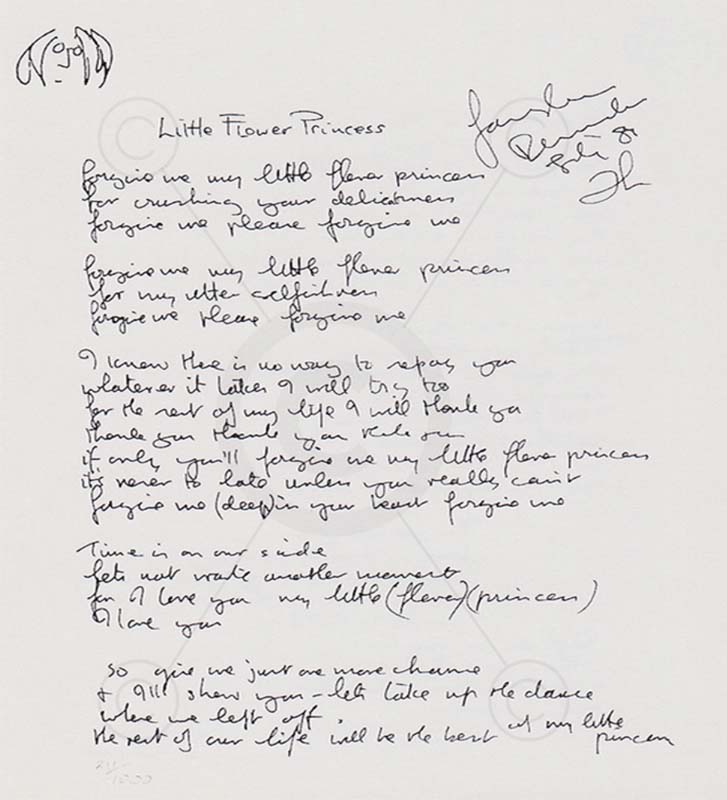 Little Flower Princess
forgive me my little flower princess
for crushing your delicateness
forgive me please forgive me
forgive me my little flower princess
for my utter selfishness
forgive me please forgive me
I know there is no way to repay you
whatever it takes I will try too
for the rest of my life I will thank ya
thank you thank you
if only you'll forgive me my little flower princess
its never to late unless you really can't
forgive me (deep) in your heart forgive me
Time is on our side
lets not waste another moment
for I love you my little (flower) (princess)
I love you
so give me just one more chance
+ I'll show you - lets take up the dance
where we left off.
the rest of our life will be the best my little
princess